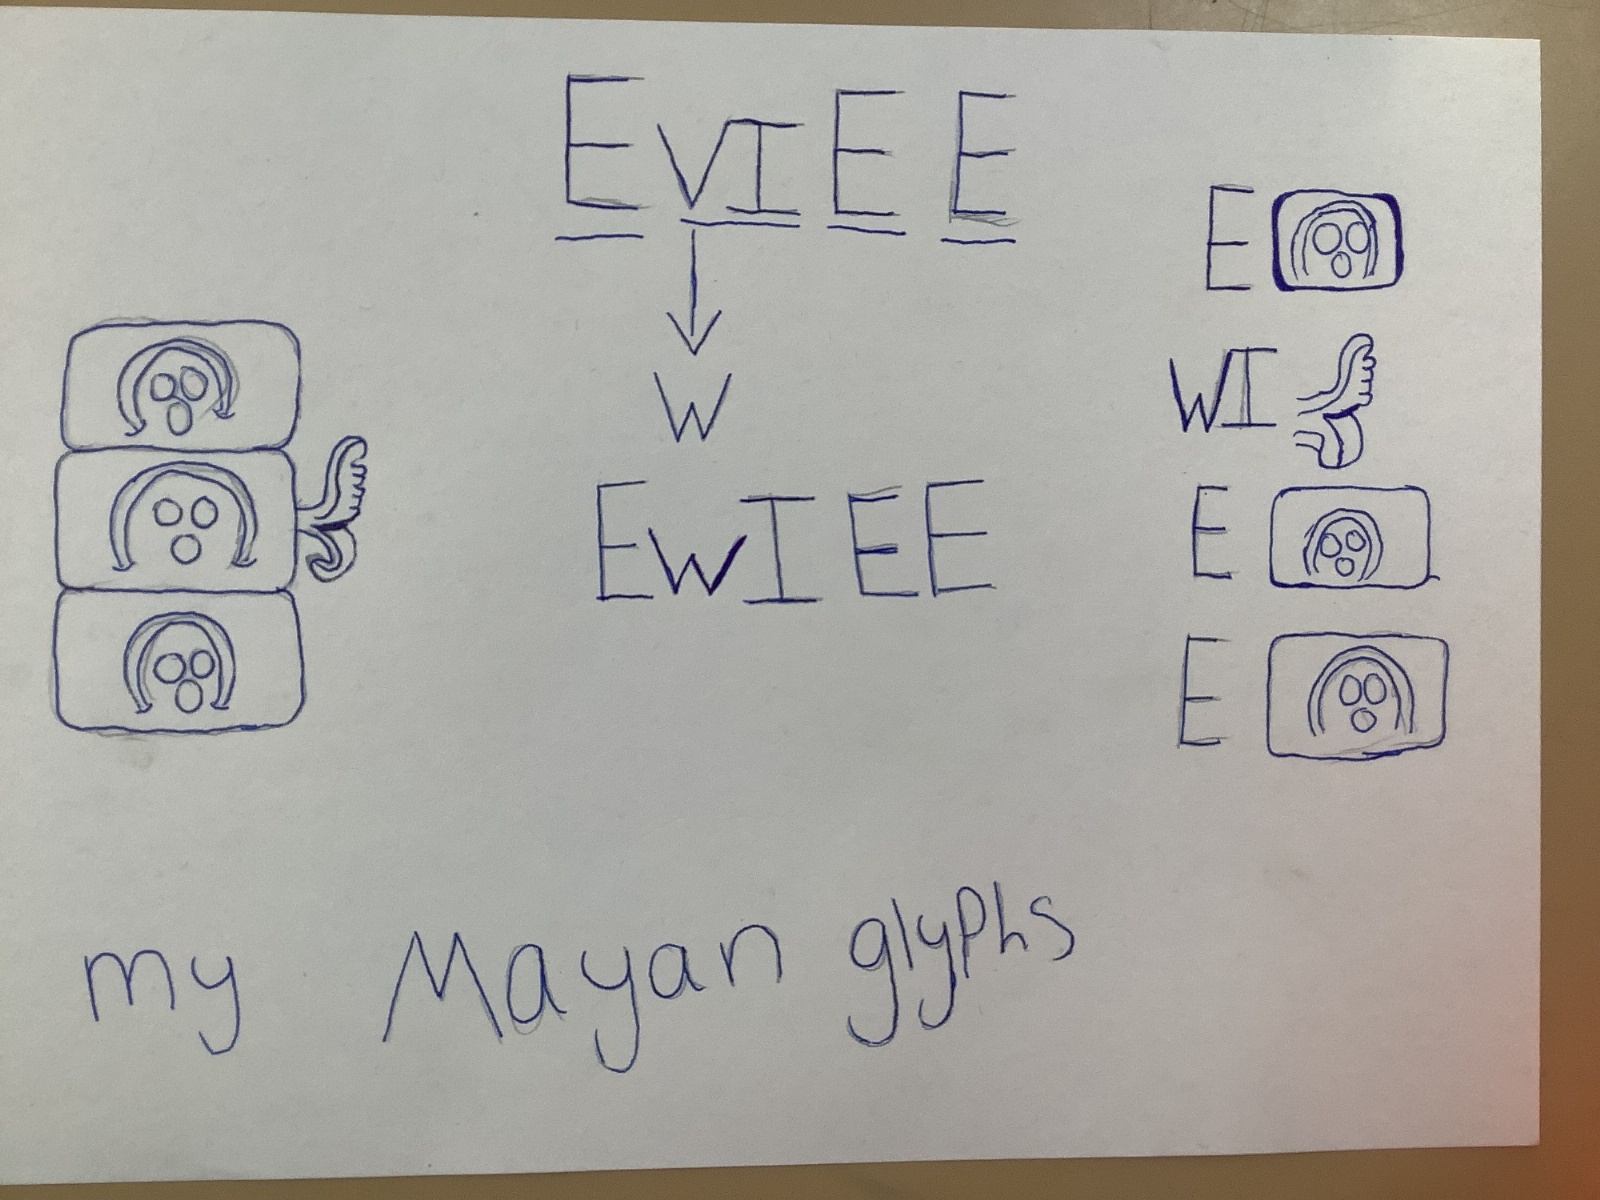 EVIEE
W
EWIEE
E
WI
E
E
my Mayan glyphs